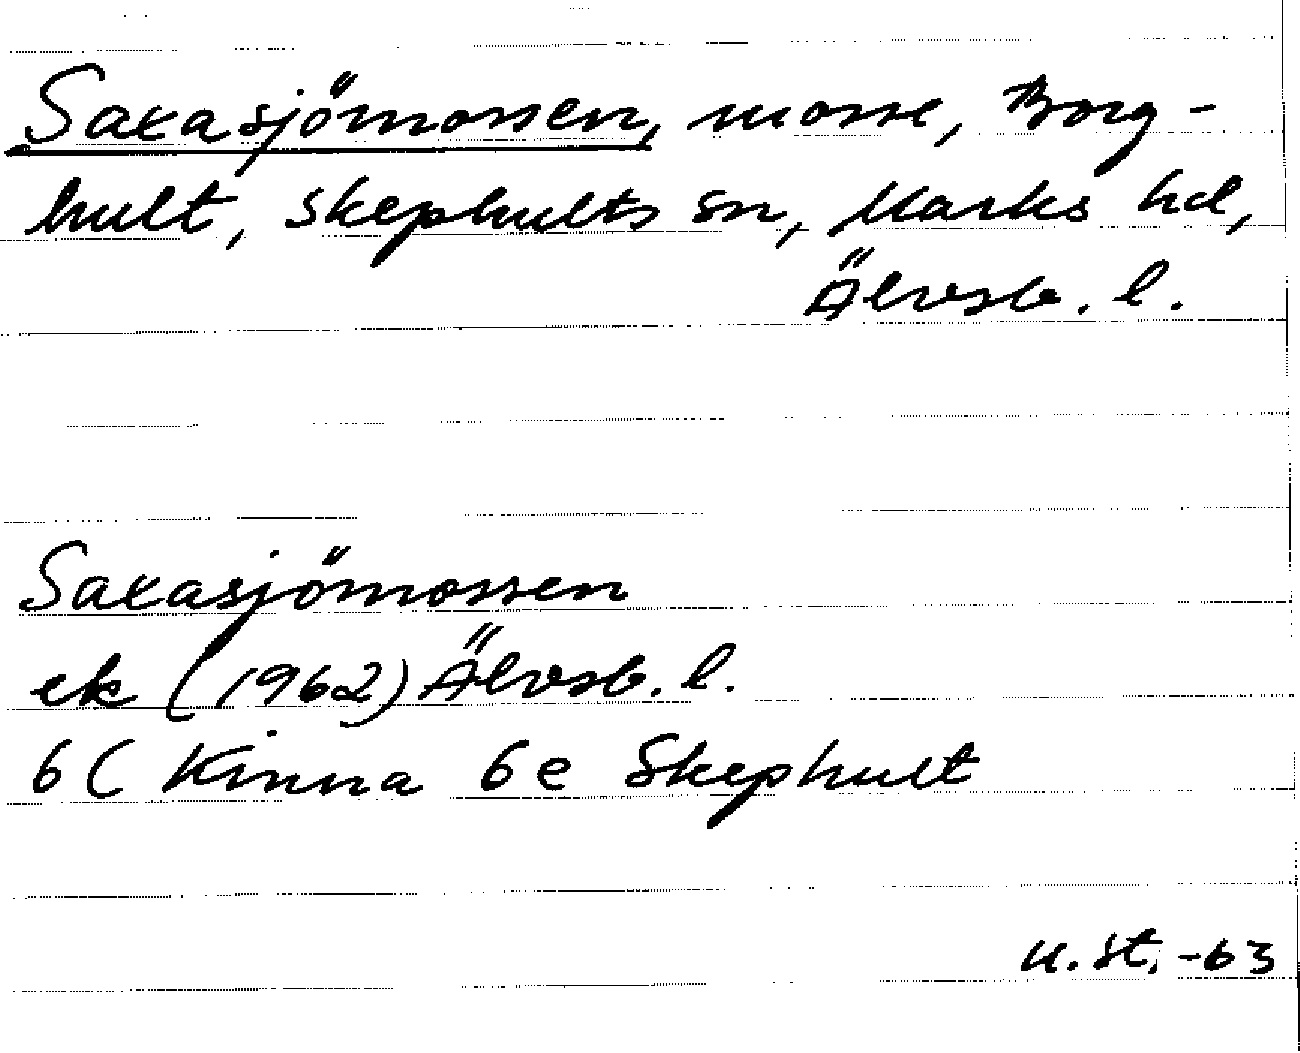 Saxasjömossen, mosse, Borg-
hult, Skephults sn, Marks hd,
Älvsb. l.
Saxasjömossen
ek (1962) Älvsb. l.
6C Kinna 6e Skephult
U. St. -63